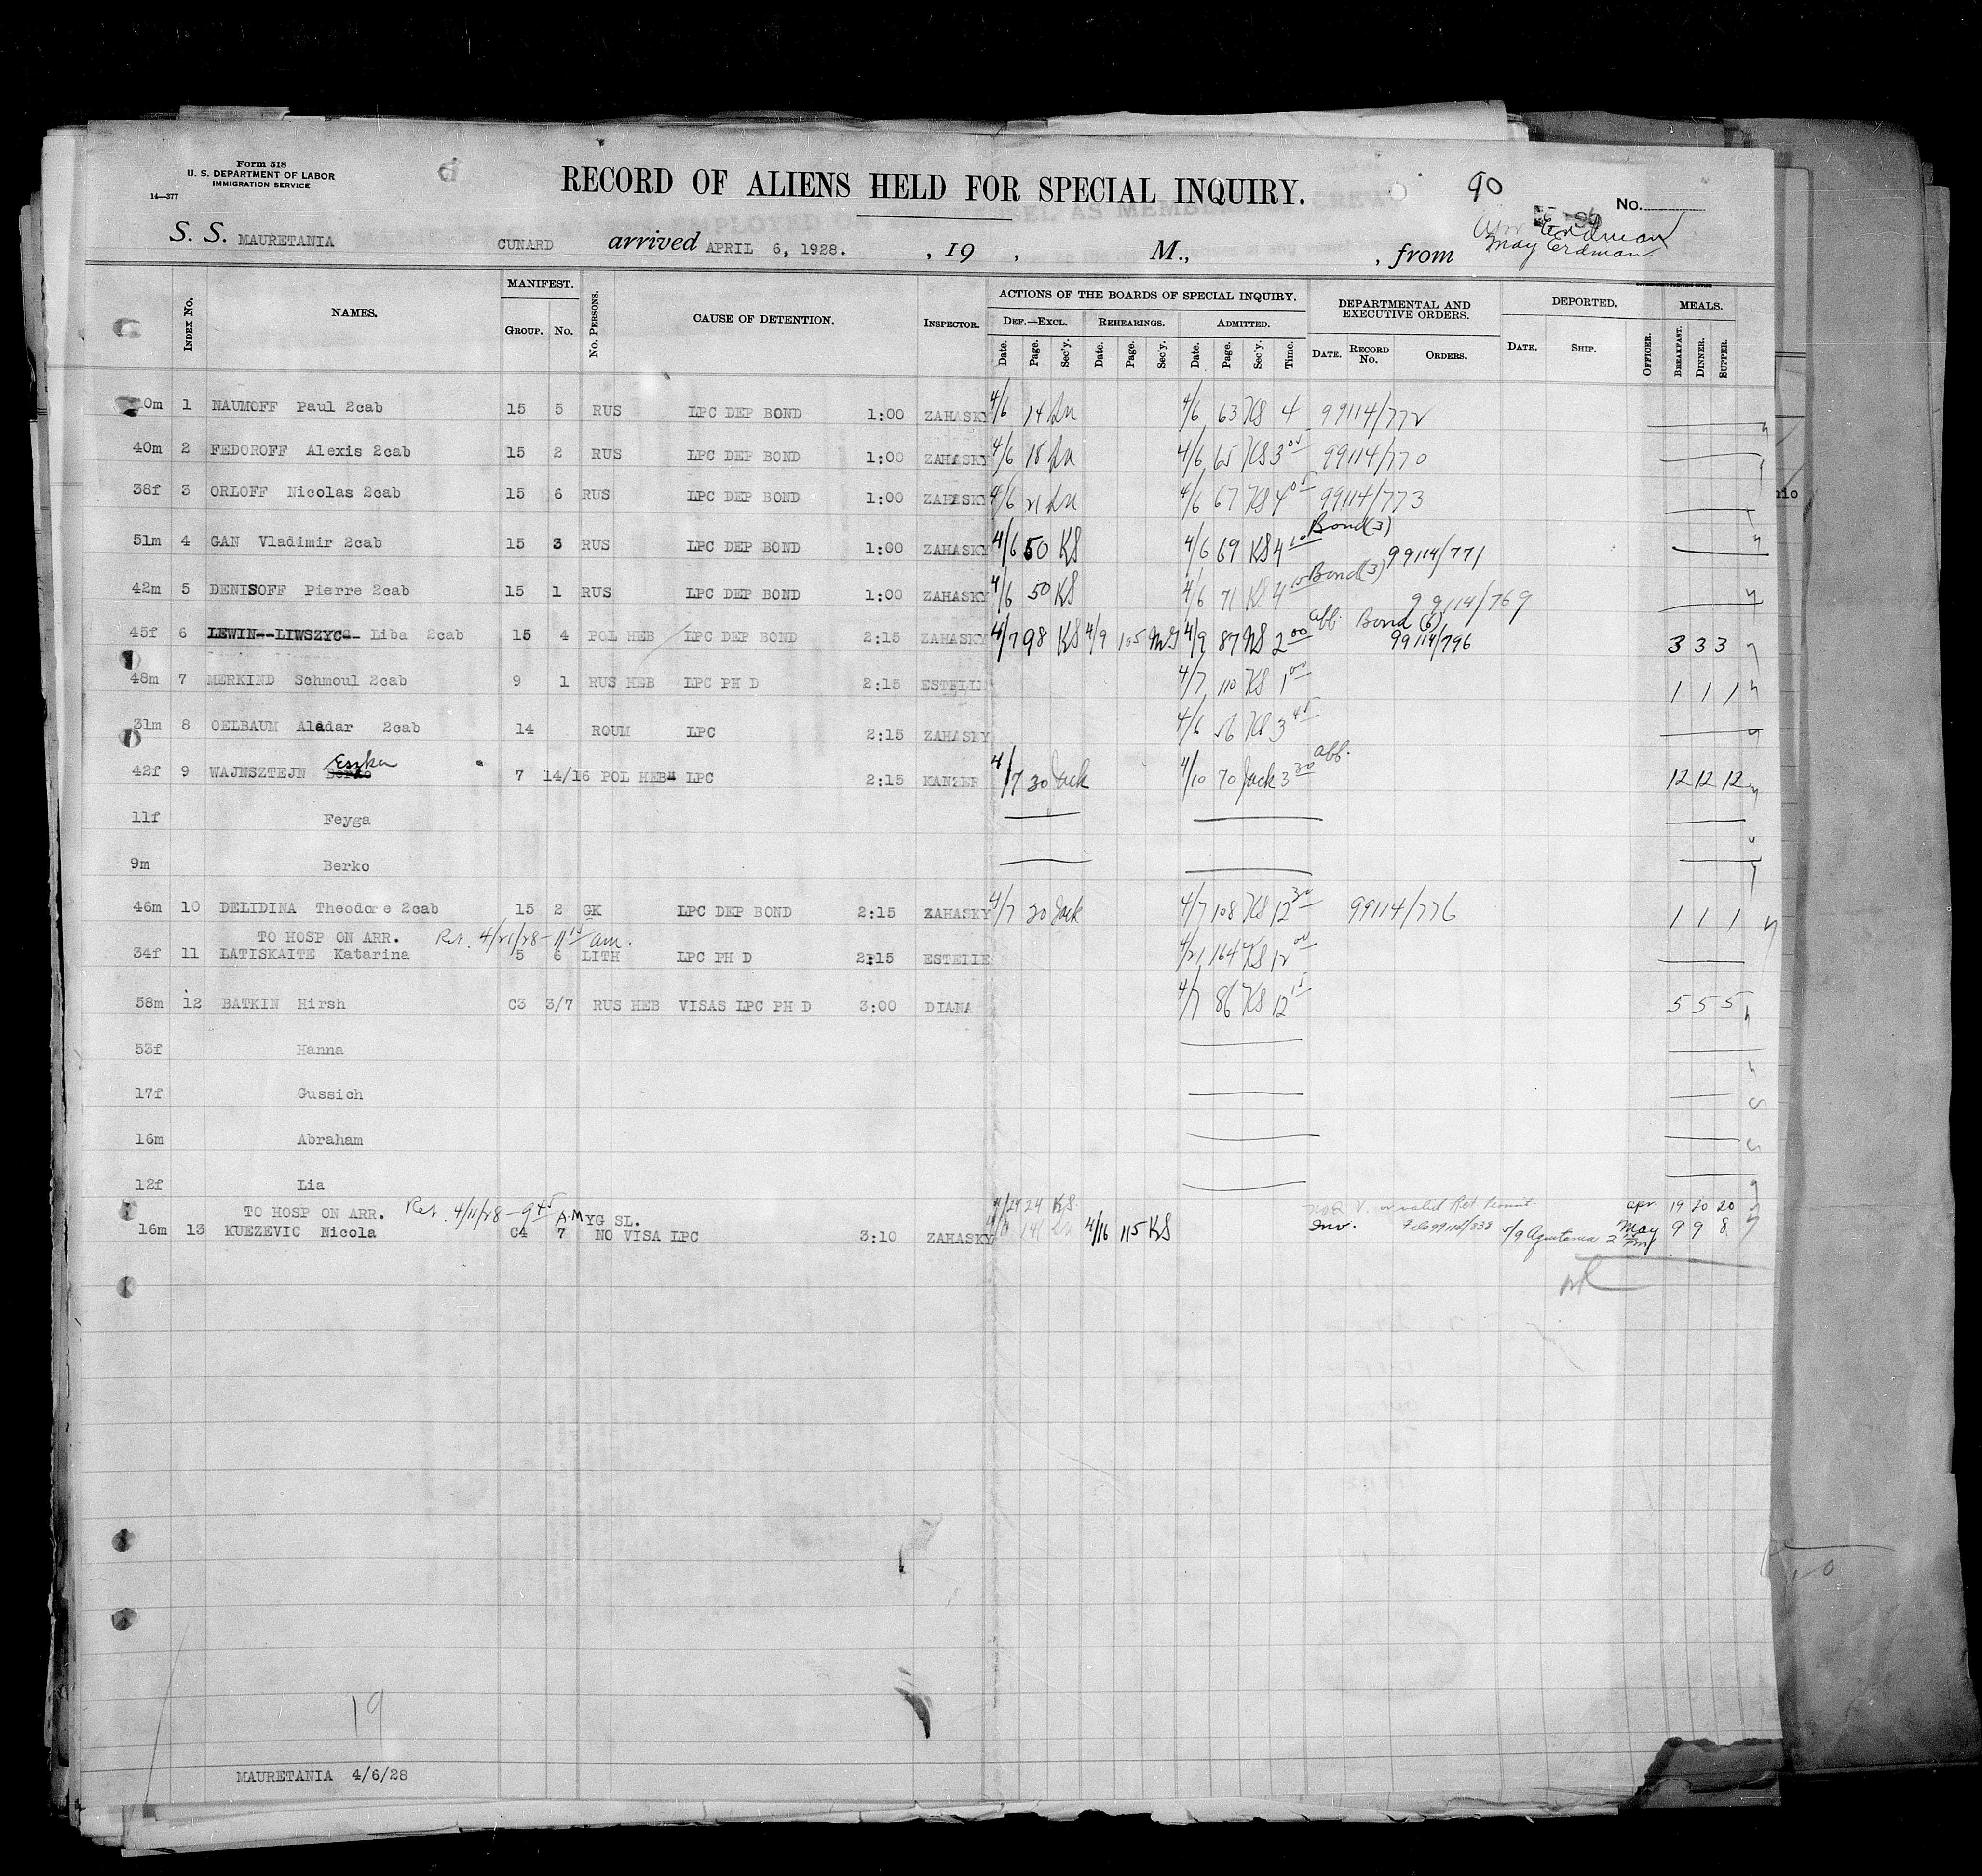 Form 518
U. S. DEPARTMENT OF LABOR
IMMIGRATION SERVICE
14—377
RECORD OF ALIENS HELD FOR SPECIAL INQUIRY.
90
No.
S. S. MAURETANIA CUNARD arrived APRIL 6, 1928. , 19 , M., , from
May Erdman
Index No. NAMES. MANIFEST. Group. No. No. Persons. CAUSE OF DETENTION. Inspector. ACTIONS OF THE BOARDS OF SPECIAL INQUIRY. DEPARTMENTAL AND EXECUTIVE ORDERS. DEPORTED. MEALS.
Def.—Excl. Rehearings. Admitted.
Date. Page. Sec'y. Date. Page. Sec'y. Date. Page. Sec'y. Time. Date. Record No. Orders. Date. Ship. Officer. Breakfast. Dinner. Supper.
0m 1 NAUMOFF Paul 2cab 15 5 RUS LPC DEP BOND 1:00 ZAHASKY 4/6 14 4/6 63 KS 4 99114/772
40m 2 FEDOROFF Alexis 2cab 15 2 RUS LPC DEP BOND 1:00 ZAHASKY 4/6 18 4/6 65 KS 99114/770
38f 3 ORLOFF Nicolas 2cab 15 6 RUS LPC DEP BOND 1:00 ZAHASKY 4/6 21 4/6 67 KS 4 05 99114/773
51m 4 GAN Vladimir 2cab 15 3 RUS LPC DEP BOND 1:00 ZAHASKY 4/6 50 KS 4/6 69 KS 4 10 Bond (3) 99114/771
42m 5 DENISOFF Pierre 2cab 15 1 RUS LPC DEP BOND 1:00 ZAHASKY 4/6 50 KS 4/6 71 KS 4 15 Bond (3) 99114/769
45f 6 LEWIN--LIWSZYC-- Liba 2cab 15 4 POL HEB LPC DEP BOND 2:15 ZAHASKY 4/7 98 KS 4/9 105 4/9 87 2 00 Bond (6) 99114/796 3 3 3
48m 7 MERKIND Schmoul 2cab 9 1 RUS HEB LPC PH D 2:15 4/7 110 KS 1 00 1 1 1
31m 8 OELBAUM Aladar 2cab 14 ROUM LPC 2:15 ZAHASKY 4/6 56 KS 3 45
Eszker
42f 9 WAJNSZTEJN Berko 7 14/16 POL HEB LPC 2:15 KANZER 4/7 30 Jack 4/10 70 Jack 3 30 12 12 12
11f Feyga
9m Berko
46m 10 DELIDINA Theodore 2cab 15 2 GK LPC DEP BOND 2:15 ZAHASKY 4/7 30 Jack 4/7 108 KS 12 30 99114/776 1 1 1
TO HOSP ON ARR. Ret. 4/21/28 - 11 15 am.
34f 11 LATISKAITE Katarina 5 6 LITH LPC PH D 2:15 ESTELLE 4/21 164 KS 12 00
58m 12 BATKIN Hirsh C3 3/7 RUS HEB VISAS LPC PH D 3:00 DIANA 4/7 86 KS 12 15 5 5 5
53f Hanna
17f Gussich
16m Abraham
12f Lia
TO HOSP ON ARR. Ret. 4/11/28 - 9 45 A.M YG SL. 4/24 24 KS. Apr. 19 20 20
16m 13 KUEZEVIC Nicola C4 7 NO VISA LPC 3:10 ZAHASKY 141 4/16 115 KS 5/9 Aquitania May 9 9 8
19
MAURETANIA 4/6/28